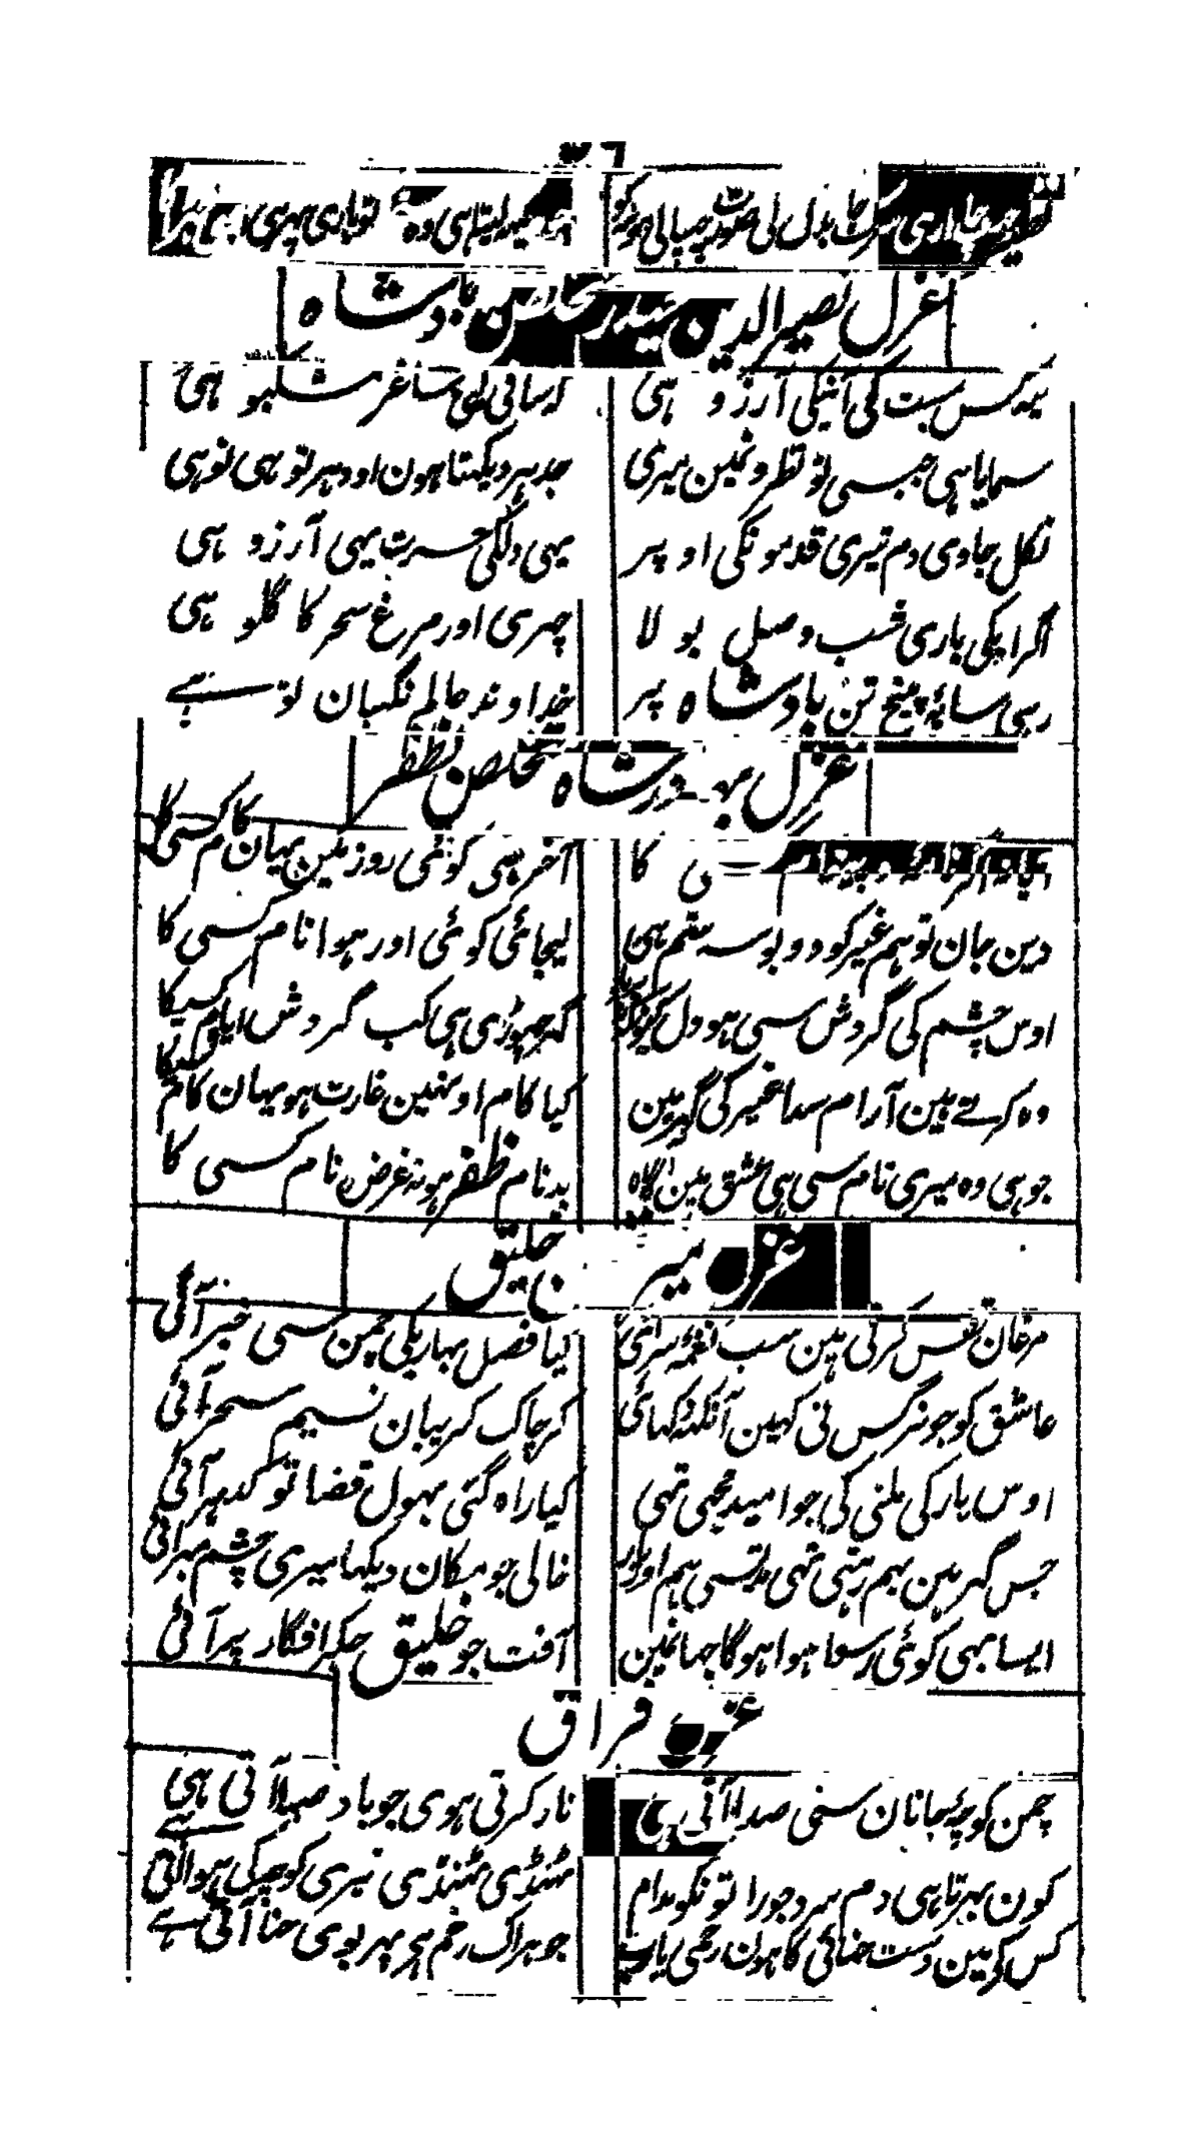 غزل نصیر الدین حیدر تخلص بادشاه
یہ کس مست کی آنیکی آرزو ہی
سمایا ہی جبسی تو نظرونمین میری جدہر دیکہتا ہون اودہر تو ہی تو ہی
نکل جاوی دم تیری قدمونکی اوپر یہی دلکی حسرت یہی آرزو ہی
اگر ابکی باری شب وصل بولا چہری اور مرغ سحر کا گلو ہی
رہی سایۂ پنج تن بادشاه پر خداوند عالم نگہبان تو ہے
غزل بہادر شاه تخلص ظفر
کا آخر ہی کوئی روز مین یہان کام کسی کا
دین جان تو ہم غیر کو دو بوسہ ستم ہی لیجائی کوئی اور ہوا نام کسی کا
اوس چشم کی گردش سی ہو دل کیونکہ کہ چہوڑی ہی کب گردش ایام کسیکا
وه کرتے ہین آرام سدا غیر کی گہر مین کیا کام اونہین غارت ہو یہان کام کسیکا
جو ہی وه میری نام سی ہی عشق مین بدنام ظفر ہو نہ غرض نام کسی کا
غزل میر خلیق
مرغان قفس کرتی ہین سب نغمہ سرائی کیا فصل بہاریکی چمن سی خبر آئی
عاشق کو جو نرگس نی کہین آنکہ دکہائی کر چاک گریبان نسیم سحر آئی
اوس یار کی ملنی کی جو امید مجہی تہی کیا راه گئی بہول قضا تو کدہر آئی
جس گہر مین بہم رہتی تہی ہم اور خالی جو مکان دیکہا میری چشم بہر آئی
ایسا بہی کوئی رسوا ہوا ہوگا جہانمین آفت جو خلیق جگر افگار پر آئی
غزل فراق
چمن کوچۂ جانان سنی صدا آتی ہی ناز کرتی ہوی جو باد صبا آتی ہی
کون بہرتا ہی دم سرد جو راتونکو مدام ٹہنڈی ٹہنڈی تیری کوچہ کی ہوا آتی ہے
کس کی مین دست حنائی کا ہون زخمی یارب جو ہر اک زخم سی بہر بوی حنا آتی ہے